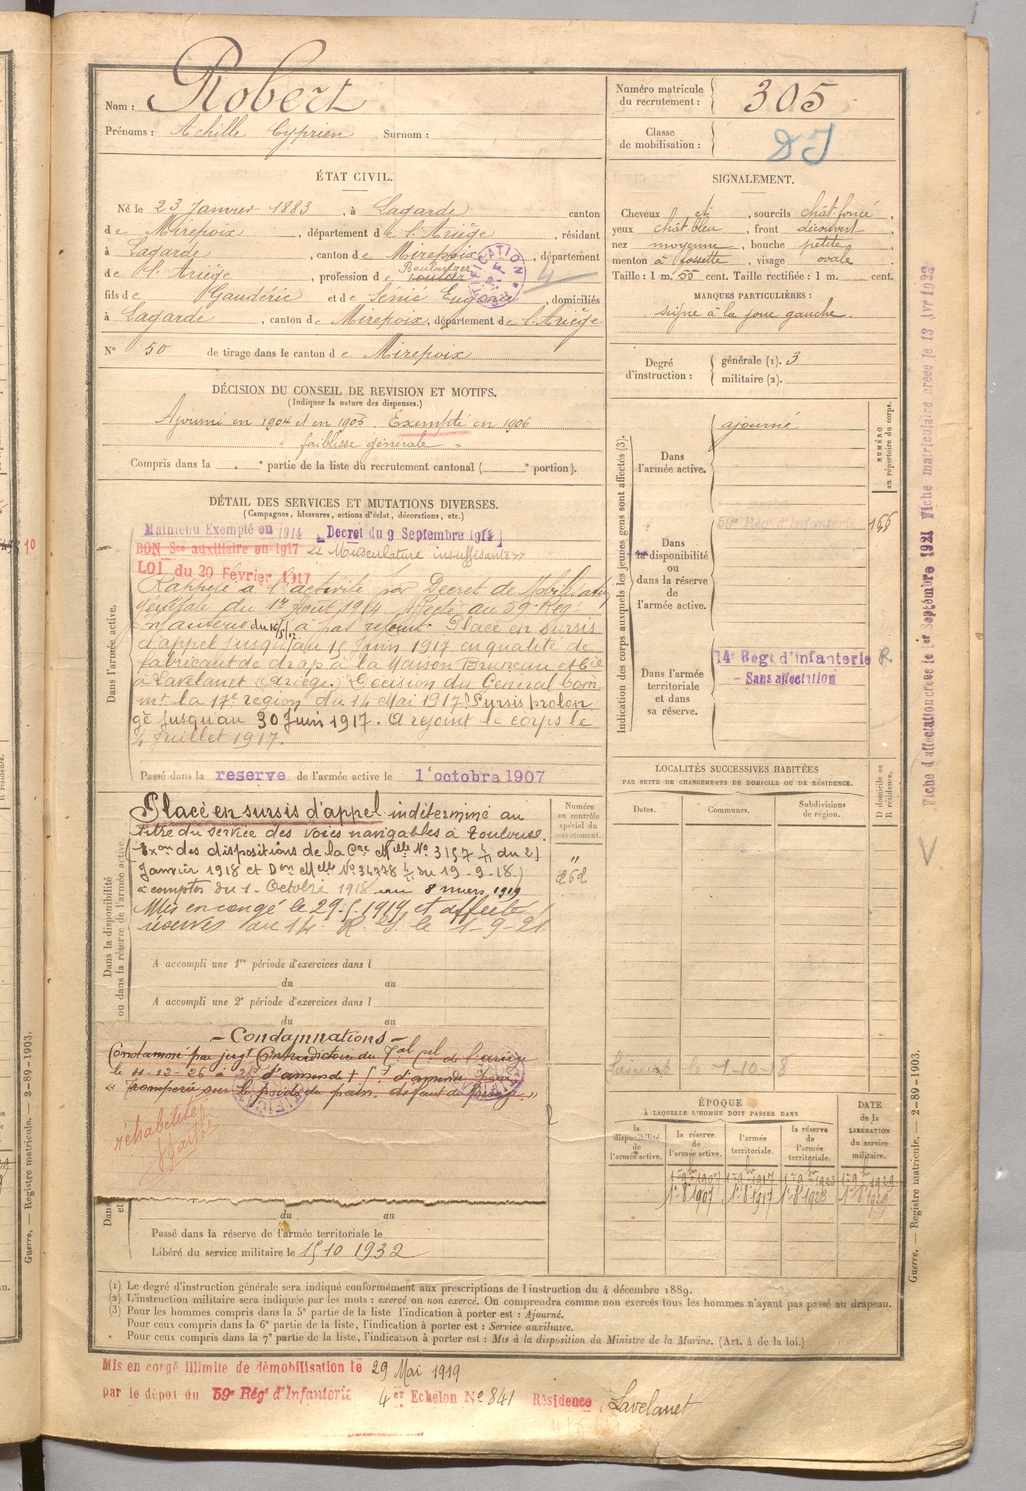 Nom : Robert
Prénoms : Achille Cyprien Surnom :
Numéro matricule du recrutement : 305
Classe de mobilisation :
ÉTAT CIVIL.
Né le 23 Janvier 1883, à Lagarde canton
de Mirepoix, département de l'Ariège, résidant
à Lagarde, canton de Mirepoix, département
de l'Ariège, profession de Boulanger
fils de Gaudéric et de Sénié Eugénie, domiciliés
à Lagarde, canton de Mirepoix, département de l'Ariège
N° 50 de tirage dans le canton de Mirepoix
SIGNALEMENT.
Cheveux et, sourcils chât foncé,
yeux chât bleu, front découvert
nez moyenne, bouche petite,
menton à fossette, visage ovale.
Taille : 1 m. 55 cent. Taille rectifiée : 1 m. cent.
MARQUES PARTICULIÈRES :
signe à la joue gauche.
Degré d'instruction :
générale (1). 3
militaire (2).
DÉCISION DU CONSEIL DE REVISION ET MOTIFS.
(Indiquer la nature des dispenses.)
Ajourné en 1904 et en 1905. Exempté en 1906
faiblesse générale
Compris dans la . e partie de la liste du recrutement cantonal ( e portion).
DÉTAIL DES SERVICES ET MUTATIONS DIVERSES.
(Campagnes, blessures, actions d'éclat, décorations, etc.)
Maintenu Exempté en 1914 Decret du 9 Septembre 1914
BON Sce auxiliaire en 1917 « Musculature insuffisante »
LOI du 20 Février 1917
Dans l'armée active.
Rappelé à l'activité par Decret de Mobilisation
générale du 1er Août 1914 Affecté au 59e Reg.
Infanterie du 16/5/17 à pas rejoint Placé en sursis
d'appel jusqu'au 15 Juin 1917 en qualité de
fabricant de drap à la Maison Bruneau et Cie
à Lavelanet (Ariège.) Décision du Général Com
mt la 17e région du 14 Mai 1917. Sursis prolon
gé jusqu'au 30 Juin 1917. A rejoint le corps le
Juillet 1917.
Passé dans la reserve de l'armée active le 1 octobre 1907
Dans la disponibilité ou dans la réserve de l'armée active.
Placé en sursis d'appel indéterminé au
titre du service des voies navigables à Toulouse.
janvier 1918 et Don Melle N° 34378 du 19-9-18.)
à compter du 1 Octobre 1918 au 8 mars 1919
Mis en congé le 29.5.1919 et affecté
réserves au 14 R. I. le 1-9-21
Numéro au contrôle spécial du recrutement.
"
262
A accompli une 1re période d'exercices dans l
du au
A accompli une 2e période d'exercices dans l
du au
- Condamnations -
Condamné par jugt Contradictoire du Tal cel de l'ariège
"Tromperie sur le poids du pain.
réhabilité
du au
Passé dans la réserve de l'armée territoriale le
Libéré du service militaire le 15 10 1932
Indication des corps auxquels les jeunes gens sont affectés (3).
NUMÉRO au répertoire du corps.
Dans l'armée active.
ajourné
Dans la disponibilité ou dans la réserve de l'armée active.
59e Régt d'Infanterie
155
Dans l'armée territoriale et dans sa réserve.
14e Regt d'infanterie R.
- Sans affectation
LOCALITÉS SUCCESSIVES HABITÉES
PAR SUITE DE CHANGEMENTS DE DOMICILE OU DE RÉSIDENCE.
Dates. Communes. Subdivisions de région. D domicile ou R résidence.
le 1-10-18
ÉPOQUE
À LAQUELLE L'HOMME DOIT PASSER DANS
la disponibilité de l'armée active. la réserve de l'armée active. l'armée territoriale. la réserve de l'armée territoriale.
DATE de la LIBÉRATION du service militaire.
Fiche d'affectation creee le 1er Septembre 1921 Fiche matriculaire creee le 13 Avr 1923
Guerre. — Registre matricule. — 2-89-1903.
Guerre. — Registre matricule. — 2-89-1903.
(1) Le degré d'instruction générale sera indiqué conformément aux prescriptions de l'instruction du 4 décembre 1889.
(2) L'instruction militaire sera indiquée par les mots : exercé ou non exercé. On comprendra comme non exercés tous les hommes n'ayant pas passé au drapeau.
(3) Pour les hommes compris dans la 5e partie de la liste l'indication à porter est : Ajourné.
Pour ceux compris dans la 6e partie de la liste, l'indication à porter est : Service auxiliaire.
Pour ceux compris dans la 7e partie de la liste, l'indication à porter est : Mis à la disposition du Ministre de la Marine. (Art. 4 de la loi.)
Mis en congé illimité de démobilisation le 29 Mai 1919
par le dépot du 59e Régt d'Infanterie 4er Echelon N° 841 Résidence Lavelanet